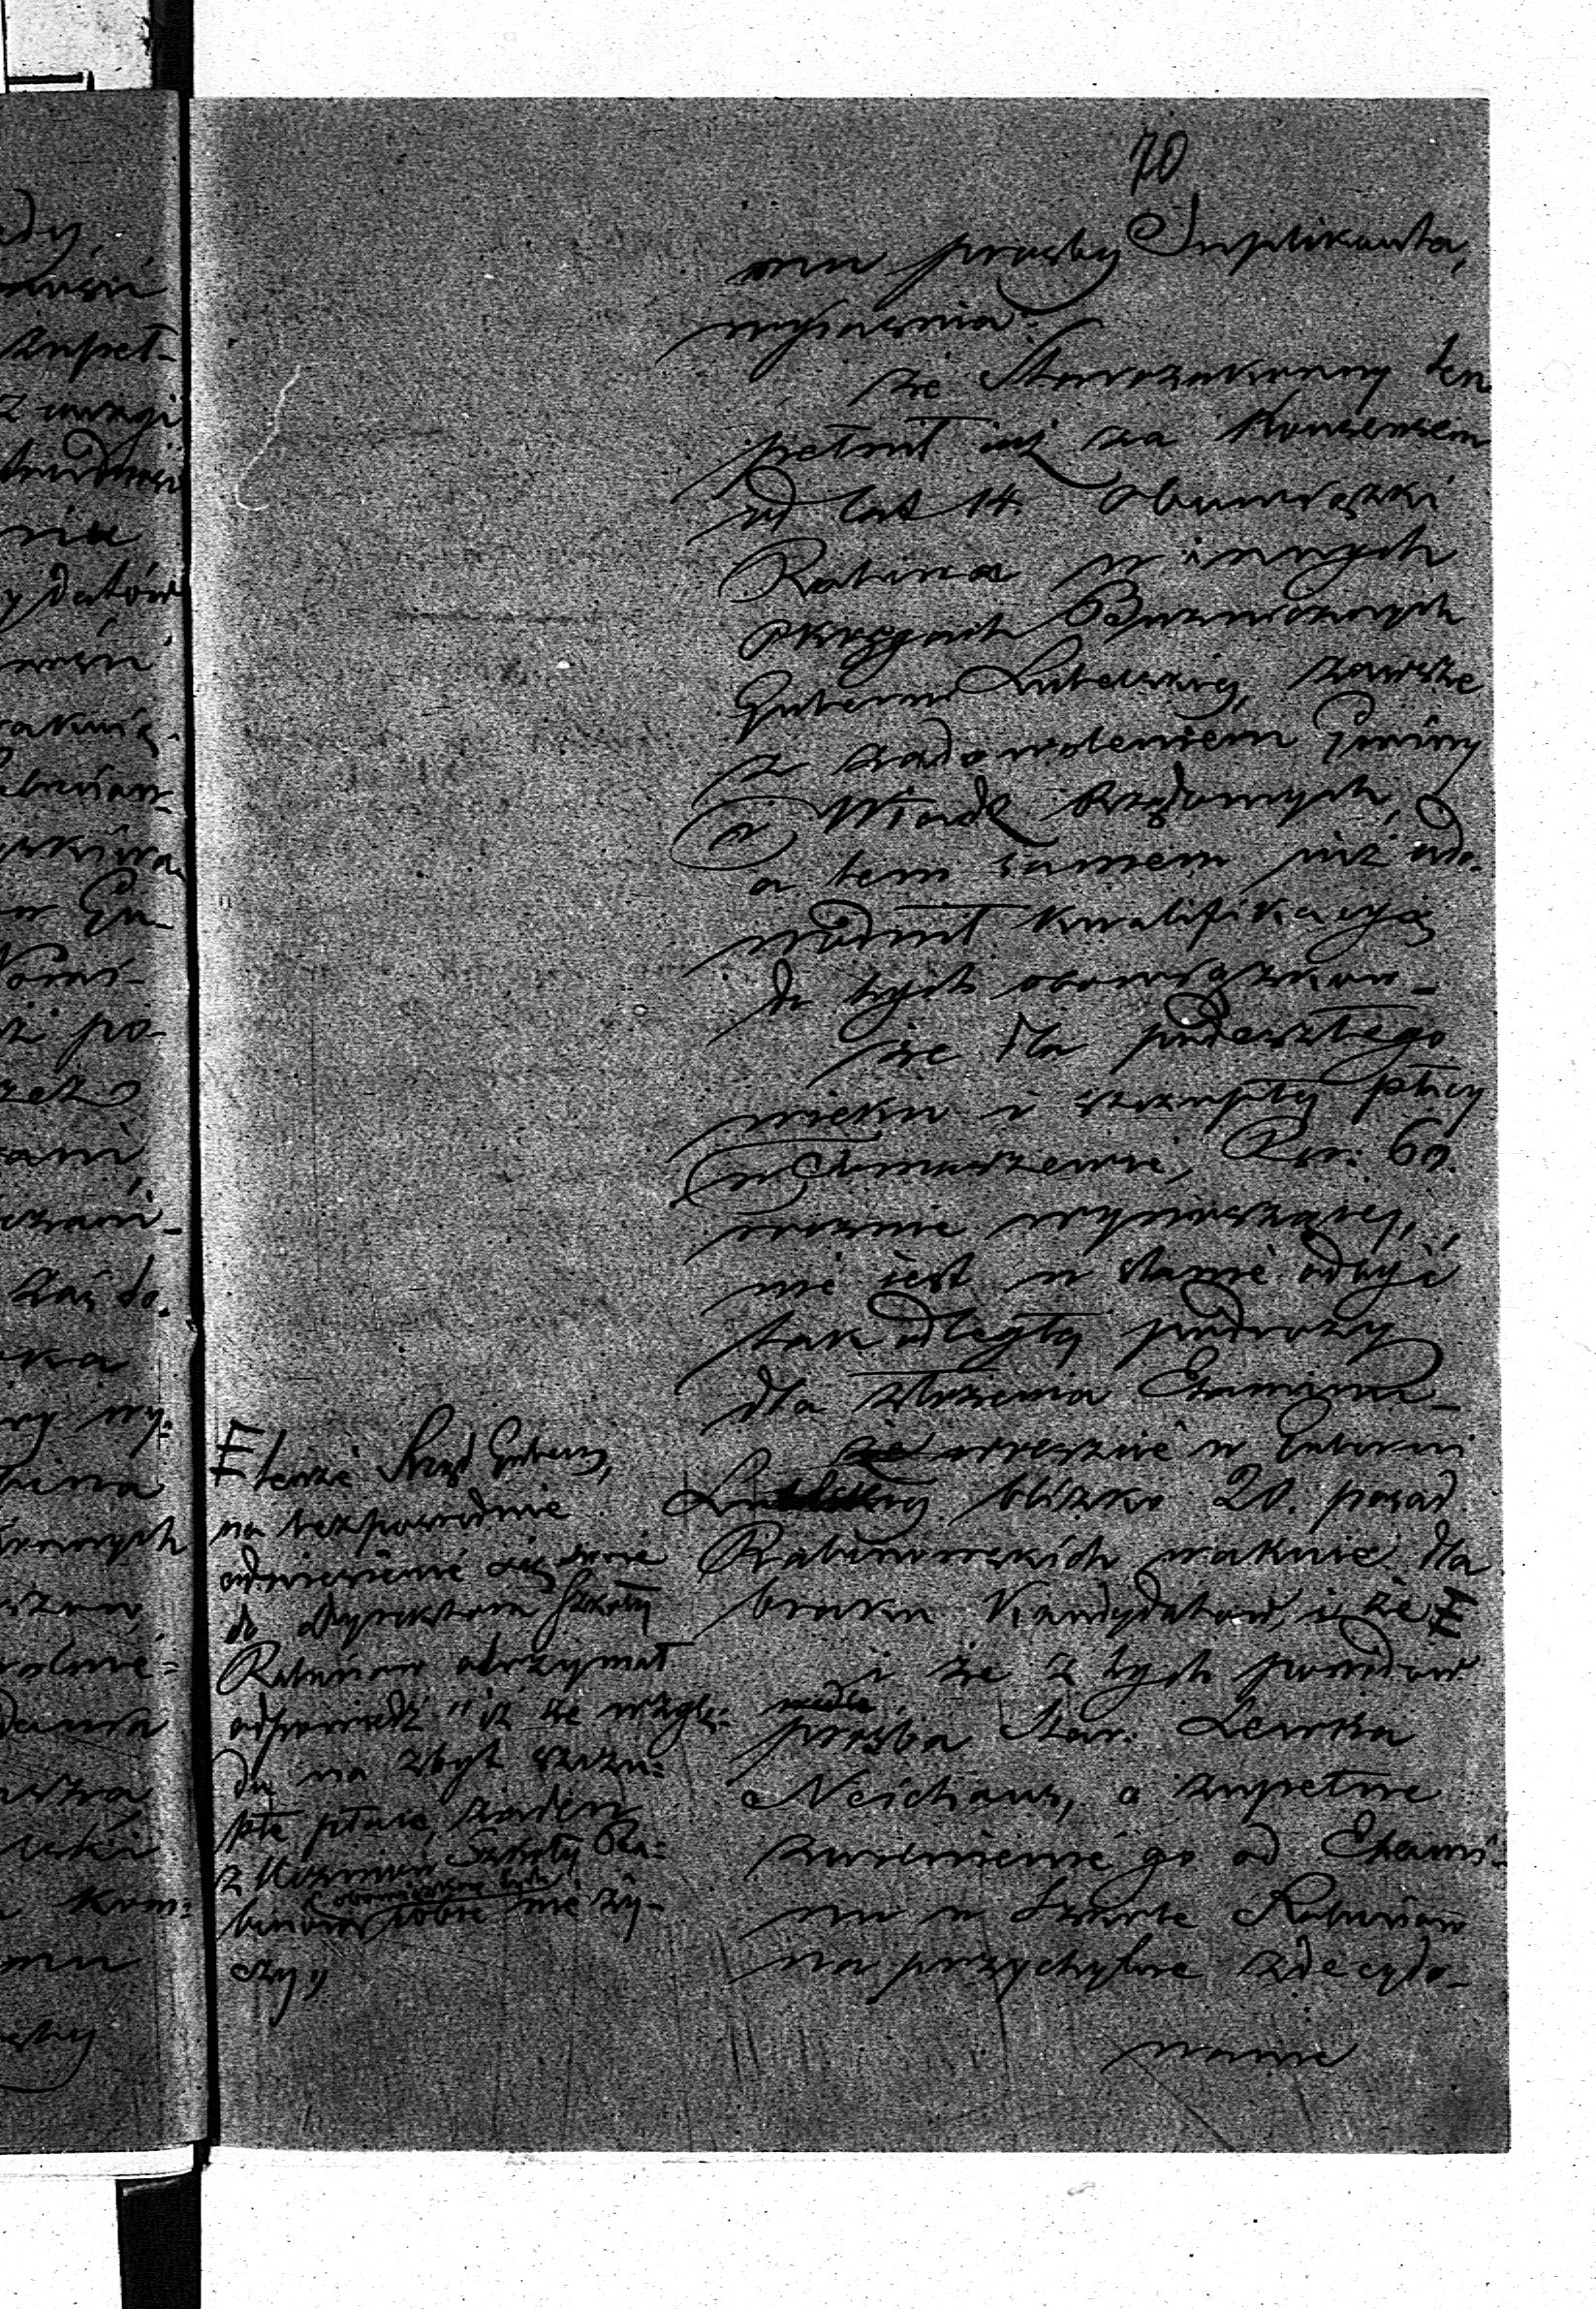 70
mu prośby Suplikanta,
wyjaśnia:
że Starozakonny ten
pełnił już za Konsensem
od lat 14. obowiązki
Rabina w innych
okręgach Bużnicznych
Gubernii Lubelskiej, zawsze
z zadowoleniem Gminy
i Władz Rządowych,
a tem samem już udo-
wodnił kwalifikacyą
do tych obowiązków –
że dla podeszłego
wieku i szczupłej płacy
w Tomaszewie, Rsr: 60.
rocznie wynoszącej,
nie jest w stanie odbyć
tak odległej podróży
dla złożenia Examinu –
że wreszcie w Gubernii
Lubelskiej blizko 20. posad
Rabinowskich wakuje dla
braku Kandydatów, i że
i że z tych powodów
prośba Star. Lewka
Neichaus, o zupełne
zwolnienie go od Exami-
nu w Szkole Rabinów
na przychylne zdecydo-
wanie
tenże Rząd Gubern,
na bezpośrednie
odniesienie się swoje
do Dyrektora Szkoły
Rabinów otrzymał
odpowiedź "iż ze wzglę-
du na zbyt szczu-
płe płace, żaden
z Uczniów Szkoły Ra-
binów obowiązków tych
sobie nie ży-
czy"